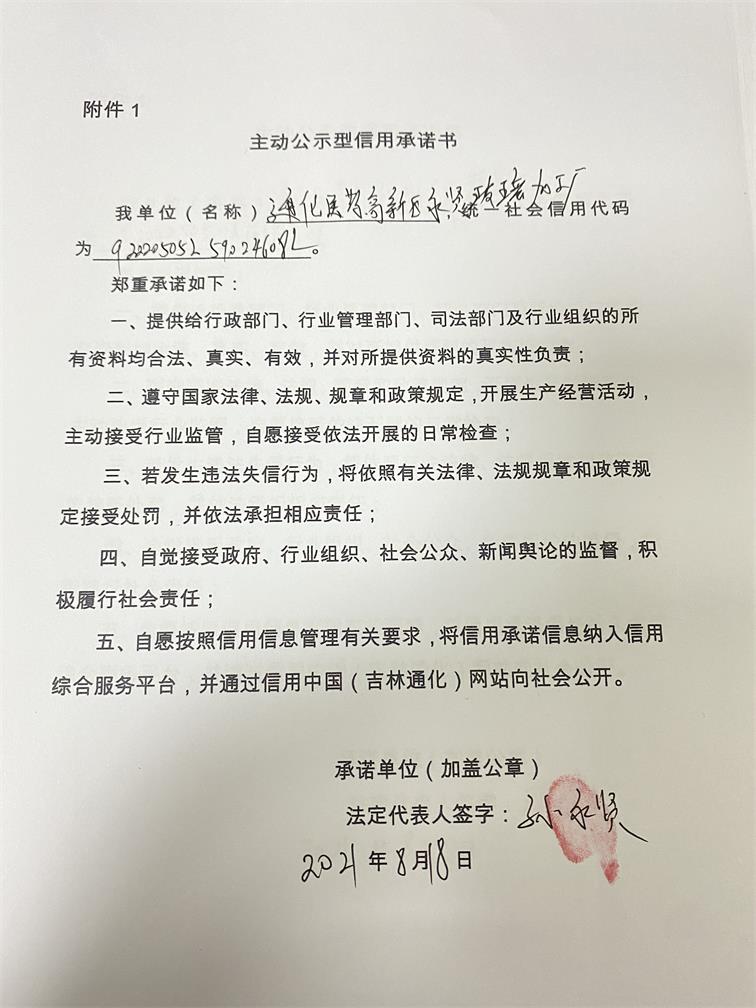 附件 1
主动公示型信用承诺书
我单位（名称）通化医药高新区永贤玻璃加工厂，统一社会信用代码
为 92020505L59024608L。
郑重承诺如下：
一、提供给行政部门、行业管理部门、司法部门及行业组织的所
有资料均合法、真实、有效，并对所提供资料的真实性负责；
二、遵守国家法律、法规、规章和政策规定，开展生产经营活动，
主动接受行业监管，自愿接受依法开展的日常检查；
三、若发生违法失信行为，将依照有关法律、法规规章和政策规
定接受处罚，并依法承担相应责任；
四、自觉接受政府、行业组织、社会公众、新闻舆论的监督，积
极履行社会责任；
五、自愿按照信用信息管理有关要求，将信用承诺信息纳入信用
综合服务平台，并通过信用中国（吉林通化）网站向社会公开。
承诺单位（加盖公章）
法定代表人签字：孙永贤
2021 年 8 月 18 日